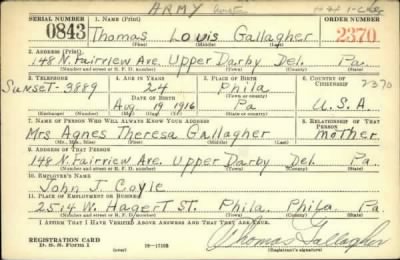 ARMY
SERIAL NUMBER 1. NAME (Print) ORDER NUMBER
0843 Thomas Louis Gallagher 2370
(First) (Middle) (Last)
2. ADDRESS (Print)
148 N. Fairview Ave. Upper Darby Del. Pa.
(Number and street or R. F. D. number) (Town) (County) (State)
3. TELEPHONE 4. AGE IN YEARS 5. PLACE OF BIRTH 6. COUNTRY OF CITIZENSHIP
Sunset-3889 24 Phila 2370
DATE OF BIRTH (Town or county)
Aug. 19 1916 Pa U.S.A.
(Mo.) (Day) (Yr.) (State or country)
7. NAME OF PERSON WHO WILL ALWAYS KNOW YOUR ADDRESS 8. RELATIONSHIP OF THAT PERSON
Mrs Agnes Theresa Gallagher mother
(Mr., Mrs., Miss) (First) (Middle) (Last)
9. ADDRESS OF THAT PERSON
148 N. Fairview Ave. Upper Darby Del. Pa.
(Number and street or R. F. D. number) (Town) (County) (State)
10. EMPLOYER'S NAME
John J. Coyle
11. PLACE OF EMPLOYMENT OR BUSINESS
2514 W. Hagert St. Phila. Phila. Pa.
(Number and street or R. F. D. number) (Town) (County) (State)
I AFFIRM THAT I HAVE VERIFIED ABOVE ANSWERS AND THAT THEY ARE TRUE.
REGISTRATION CARD Thomas Gallagher
D. S. S. Form 1 (over) 16—17105 (Registrant's signature)